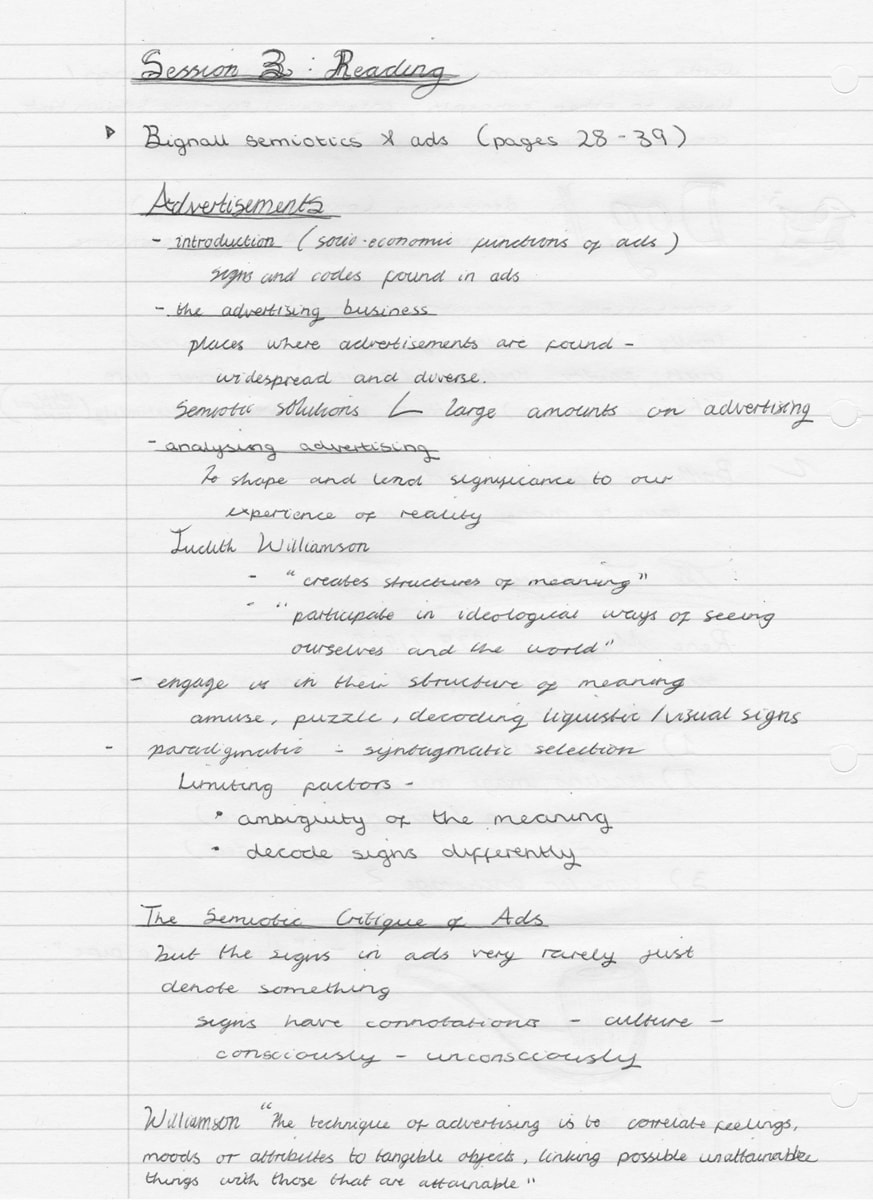 Session 3 : Reading
Bignall semiotics & ads (pages 28-39)
Advertisements
- introduction (socio-economic functions of ads)
signs and codes found in ads
- the advertising business
places where advertisements are found -
widespread and diverse.
Semiotic solutions large amounts on advertising
- analysing advertising
To shape and lend significance to our
experience of reality
Judith Williamson
- "creates structures of meaning"
- "participate in ideological ways of seeing
ourselves and the world"
- engage us in their structure of meaning
amuse, puzzle, decoding liguistic / visual signs
- paradigmatic - syntagmatic selection
Limiting factors -
• ambiguity of the meaning
• decode signs differently
The Semiotic Critique of Ads
but the signs in ads very rarely just
denote something
signs have connotations - culture -
consciously - unconsciously
Williamson "The technique of advertising is to correlate feelings,
moods or attributes to tangible objects, linking possible unattainable
things with those that are attainable"